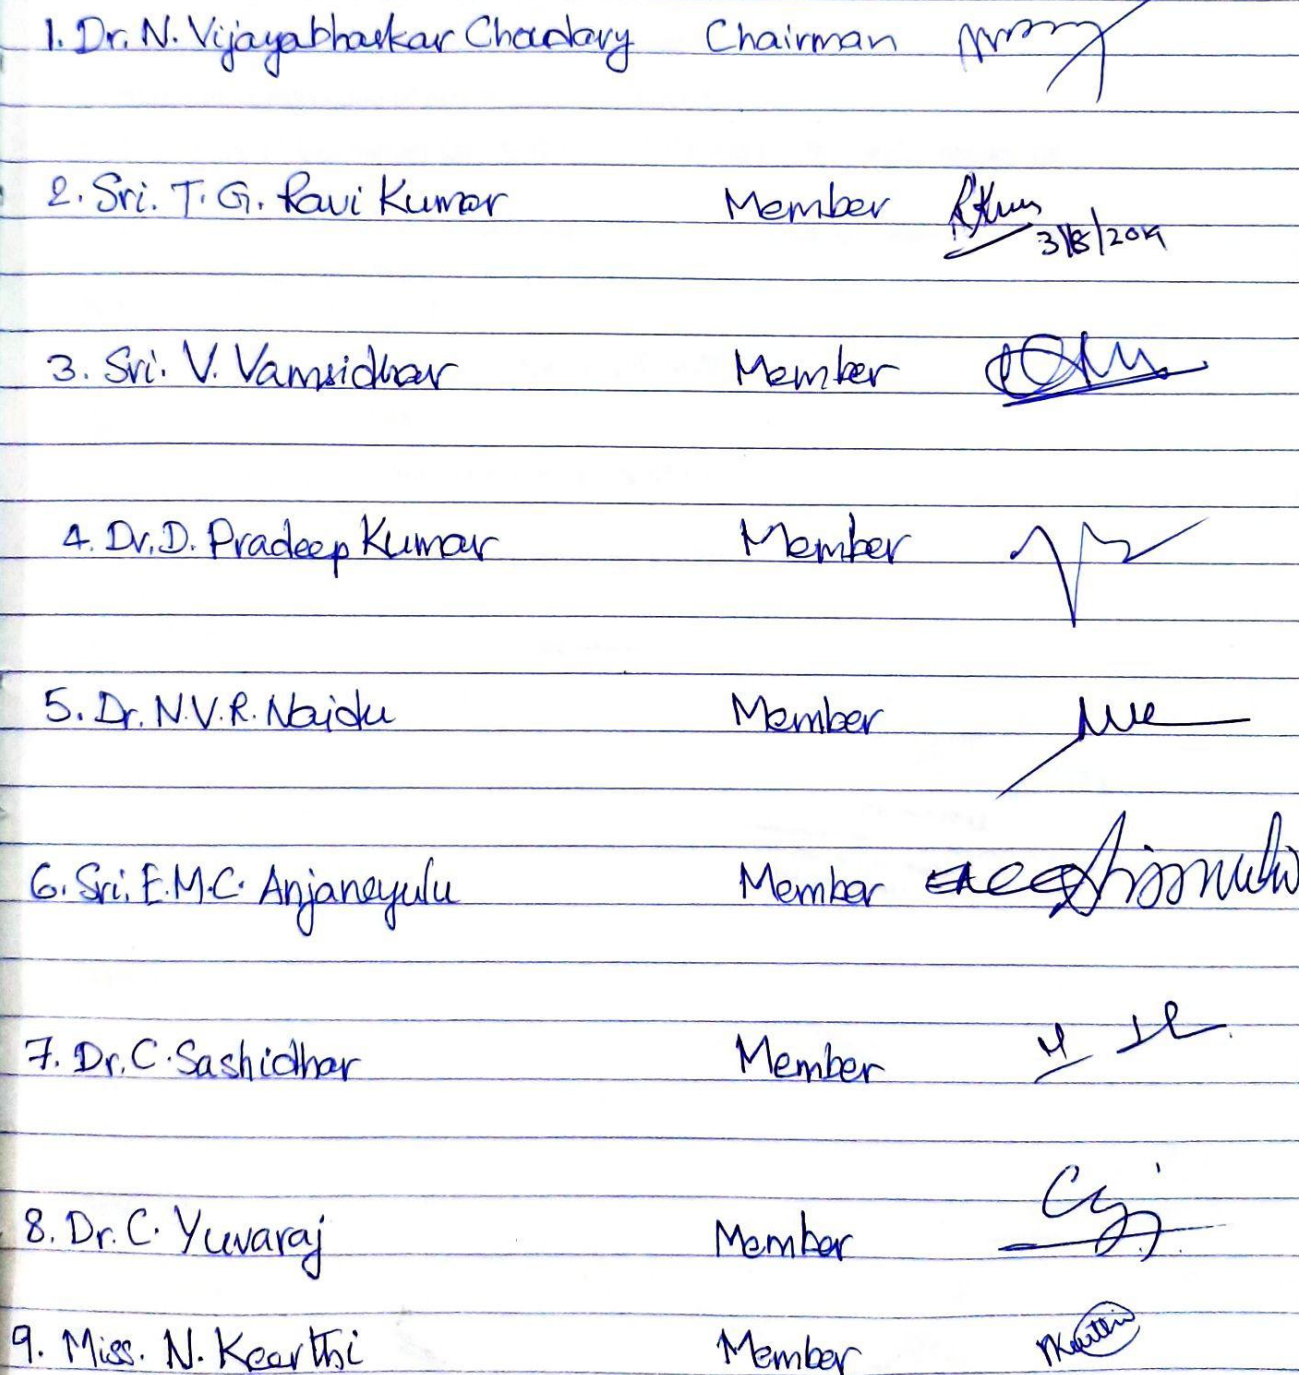 1. Dr. N. Vijayabhaskar Chowdary Chairman
2. Sri. T. G. Ravi Kumar Member
3/8/2019
3. Sri. V. Vamsidhar Member
4. Dr. D. Pradeep Kumar Member
5. Dr. N.V.R. Naidu Member
6. Sri. E.M.C. Anjaneyulu Member
7. Dr. C. Sashidhar Member
8. Dr. C. Yuvaraj Member
9. Miss. N. Keerthi Member NKeerthi